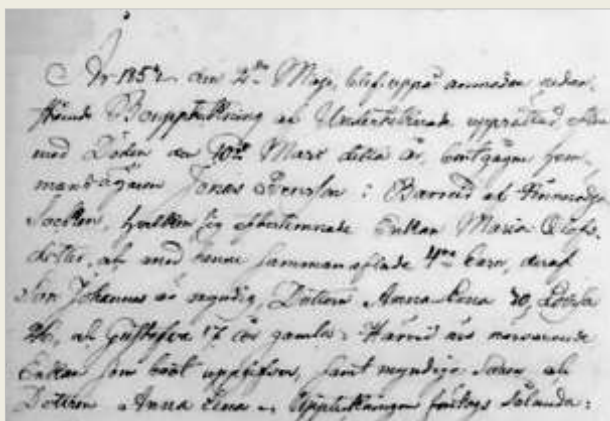 År 185 den 2dre Maji, blef uppå anmodan nedan,
stående Bouppteckning af Undertecknade upprättad efter
med Döden den 10de Mars detta år, bortgågne hem,
mansägaren Jonas Svensson i Barnid af Finneredja
Socken, hvilken sig efterlemnade Enkan Maria Olofs,
dotter, at med henne sammanaflade 4ra barn, deraf
Son Johannes är myndig, Döttrarne Anna Lena 20, Lovisa
26, ah Gustafva 17 år gamla. Härvid äro närvarande
Enkan som boet uppgifver, samt myndige Sonen ah
Dottren Anna Lena . Uppteckningen företogs sålunda: